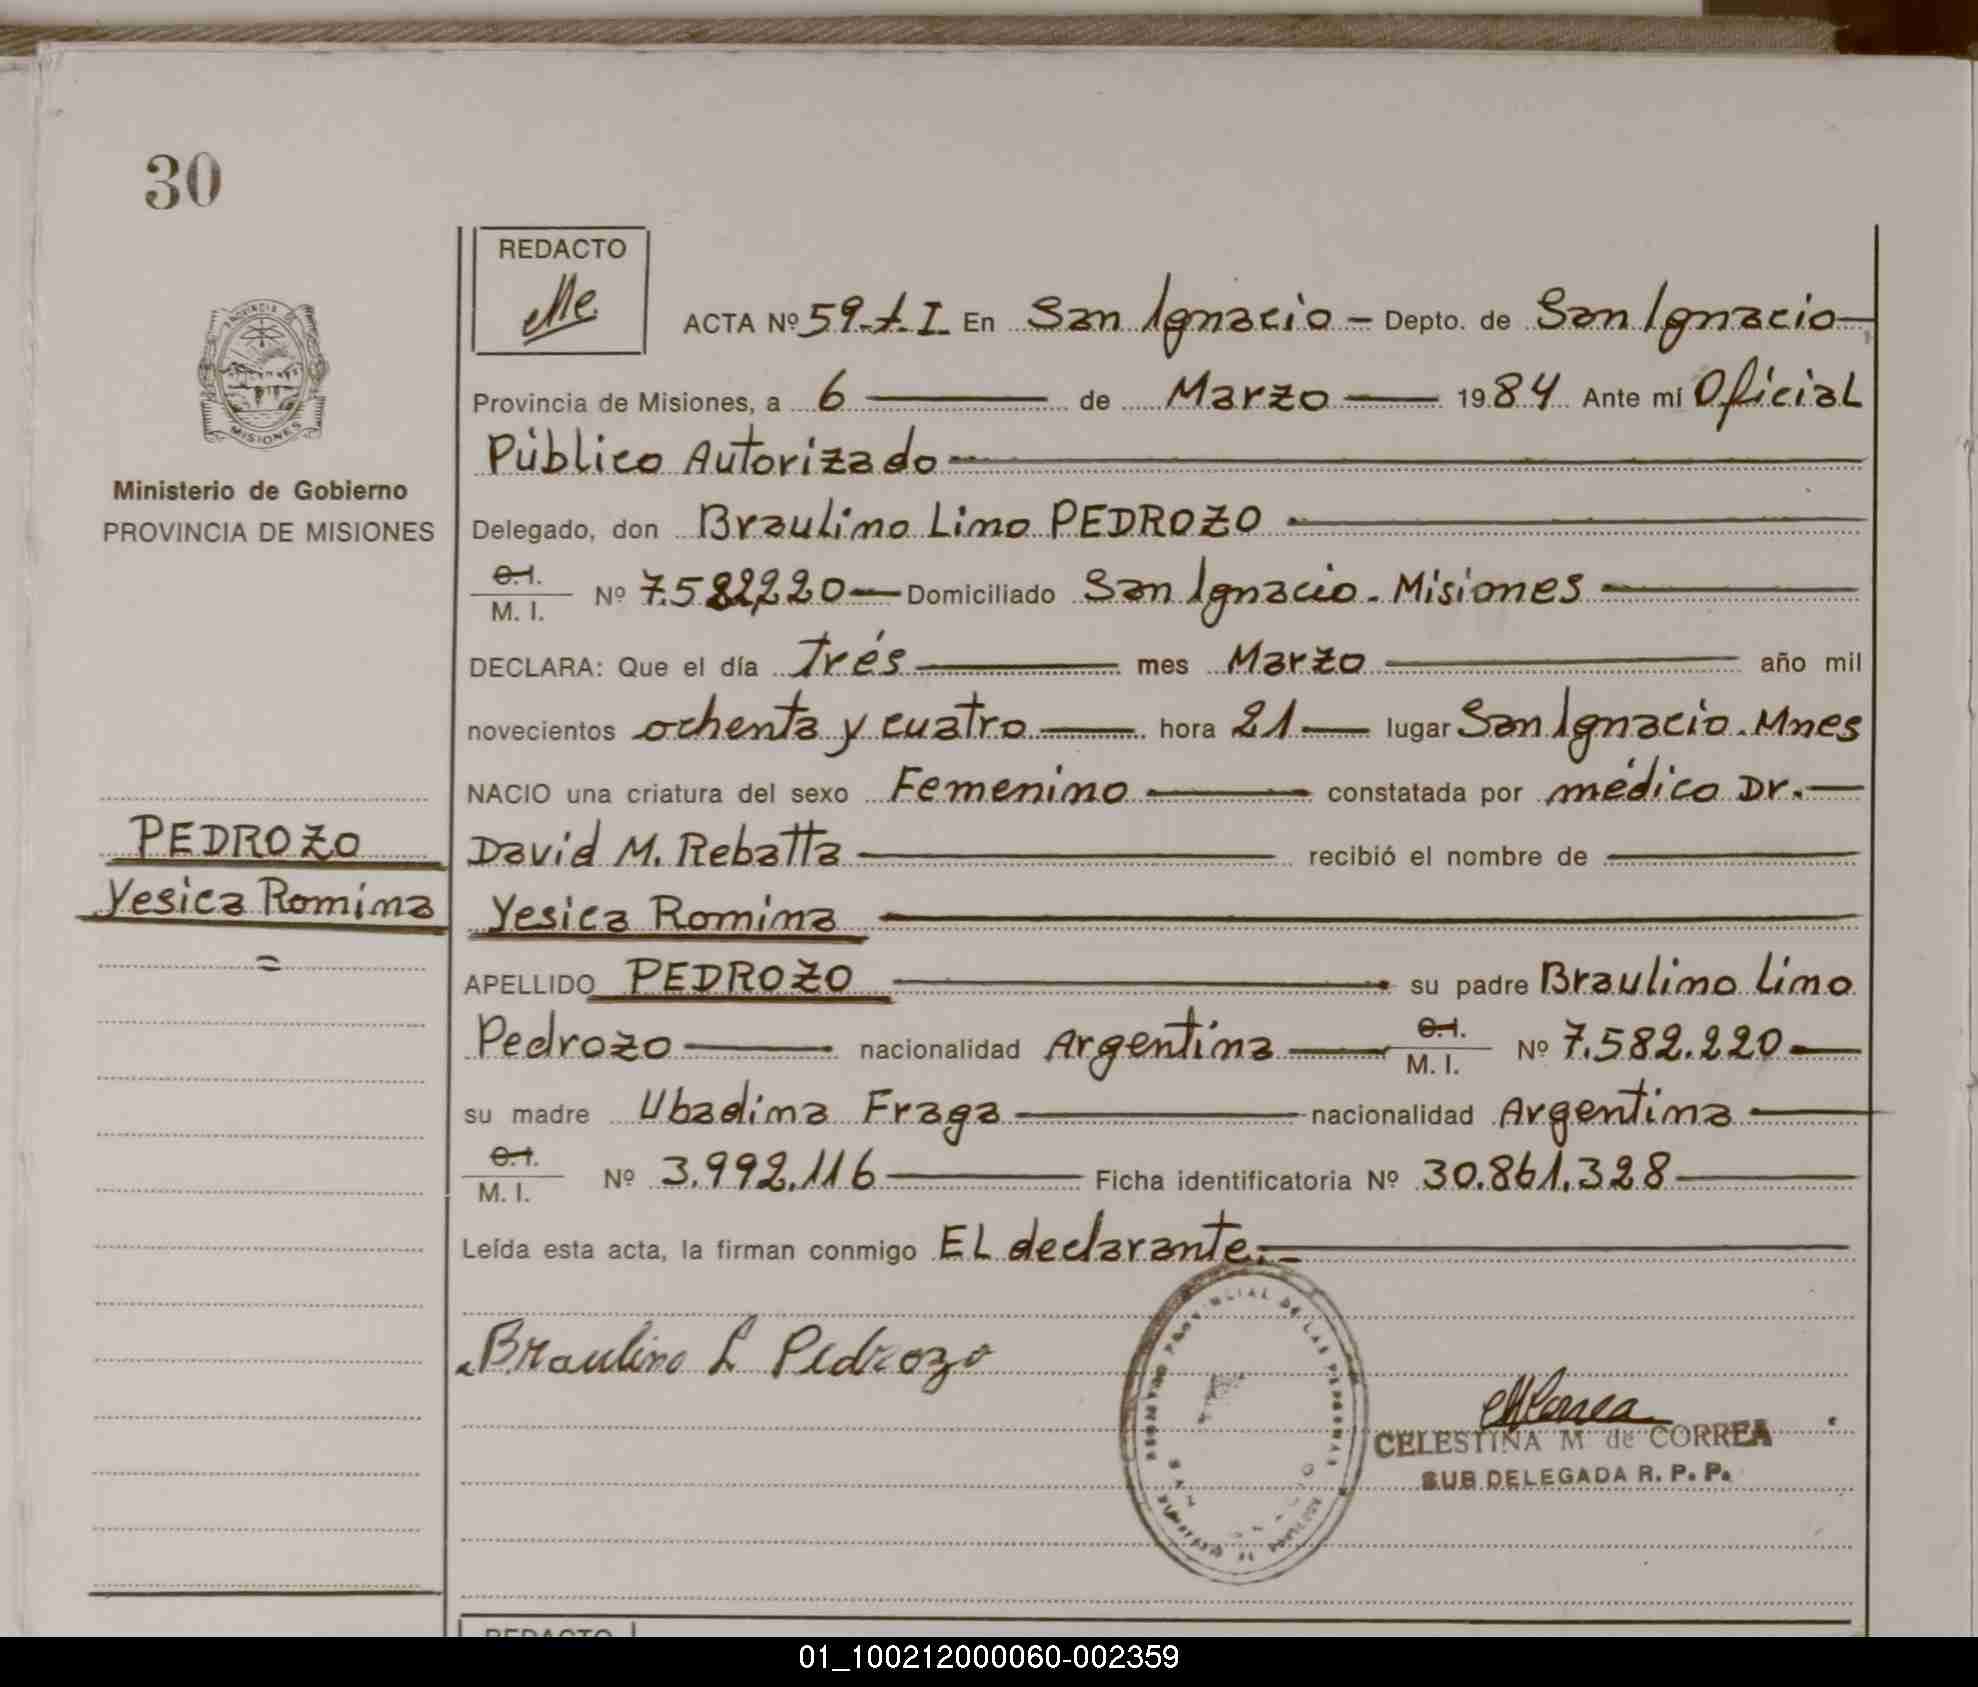 30
REDACTO
ACTA Nº 59.-t.I. En San Ignacio - Depto. de San Ignacio
Provincia de Misiones, a 6 de Marzo 1984 Ante mí Oficial
Público Autorizado
Ministerio de Gobierno
PROVINCIA DE MISIONES
Delegado, don Braulino Lino PEDROZO
C.I. / M. I. Nº 7.582.220 Domiciliado San Ignacio. Misiones
DECLARA: Que el día Trés mes Marzo año mil
novecientos ochenta y cuatro hora 21 lugar San Ignacio. Mnes
NACIO una criatura del sexo Femenino constatada por médico Dr.
David M. Rebatta recibió el nombre de
Yesica Romina
PEDROZO
Yesica Romina
=
APELLIDO PEDROZO su padre Braulino Lino
Pedrozo nacionalidad Argentina C.I. / M. I. Nº 7.582.220
su madre Ubadina Fraga nacionalidad Argentina
C.I. / M. I. Nº 3.992.116 Ficha identificatoria Nº 30.861.328
Leída esta acta, la firman conmigo EL declarante.-
Braulino L Pedrozo
REGISTRO PROVINCIAL DE LAS PERSONAS
CELESTINA M de CORREA
SUB DELEGADA R. P. P.
REDACTO
01_100212000060-002359